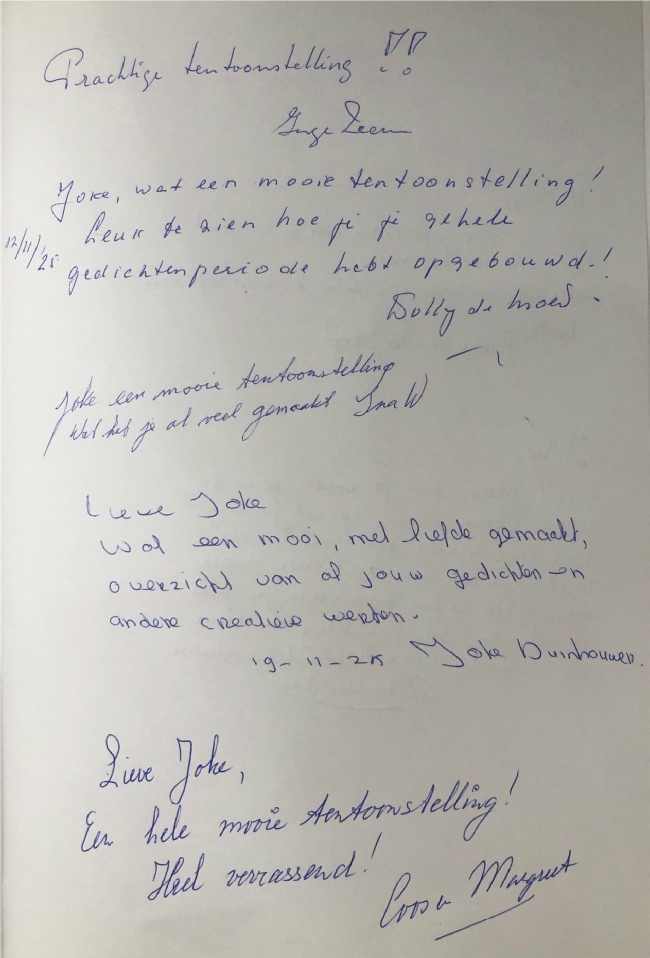 Prachtige tentoonstelling !!
Inge
Joke, wat een mooie tentoonstelling!
Leuk te zien hoe je je gehele
12/11/'25
gedichtenperiode hebt opgebouwd!
Dolly de
Joke een mooie tentoonstelling
Wat heb je al veel gemaakt Ina W
Lieve Joke
Wat een mooi, met liefde gemaakt,
overzicht van al jouw gedichten en
andere creatieve werken.
19-11-25 Joke Duinhouwer.
Lieve Joke,
Een hele mooie tentoonstelling!
Heel verrassend!
Coos en Margreet